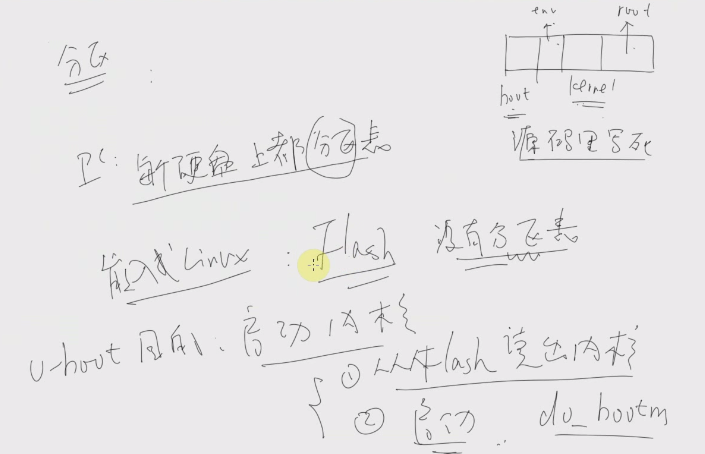 env root
分区：
boot kernel
源码里写死
PC：每个硬盘上都有分区表
嵌入式Linux：Flash 没有分区表
u-boot目的：启动内核
① 从Flash读出内核
② 启动 .. do_bootm